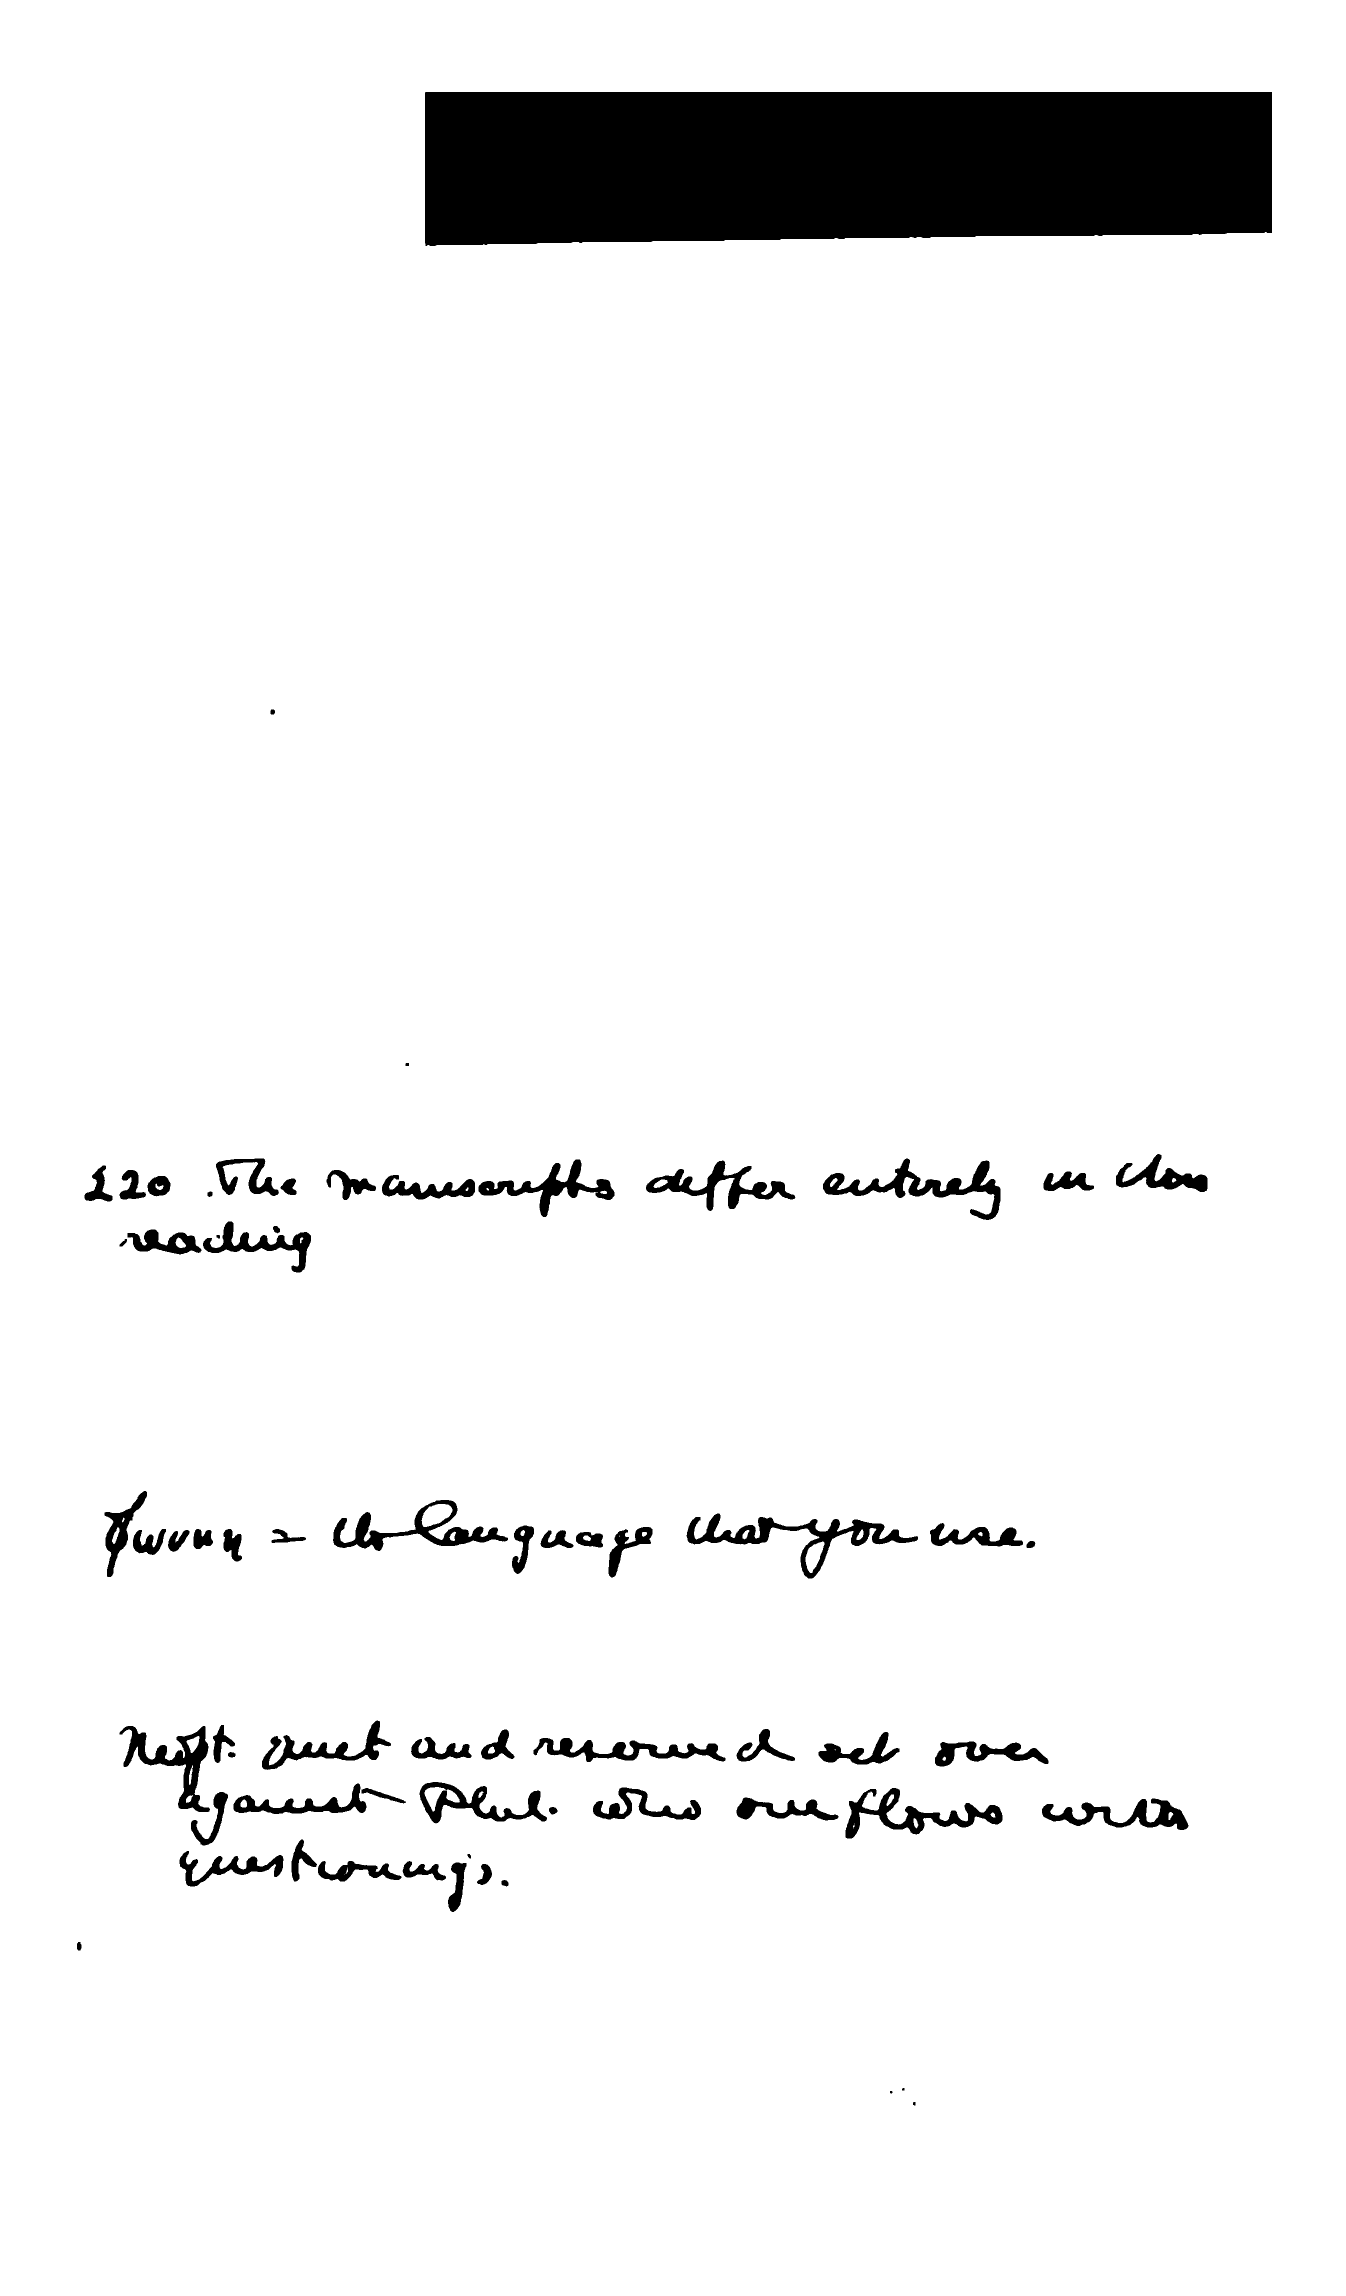 220. The manuscripts differ entirely in this
reading
φωνην = the language that you use.
Neopt. quiet and reserved set over
against Phil. who overflows with
questionings.